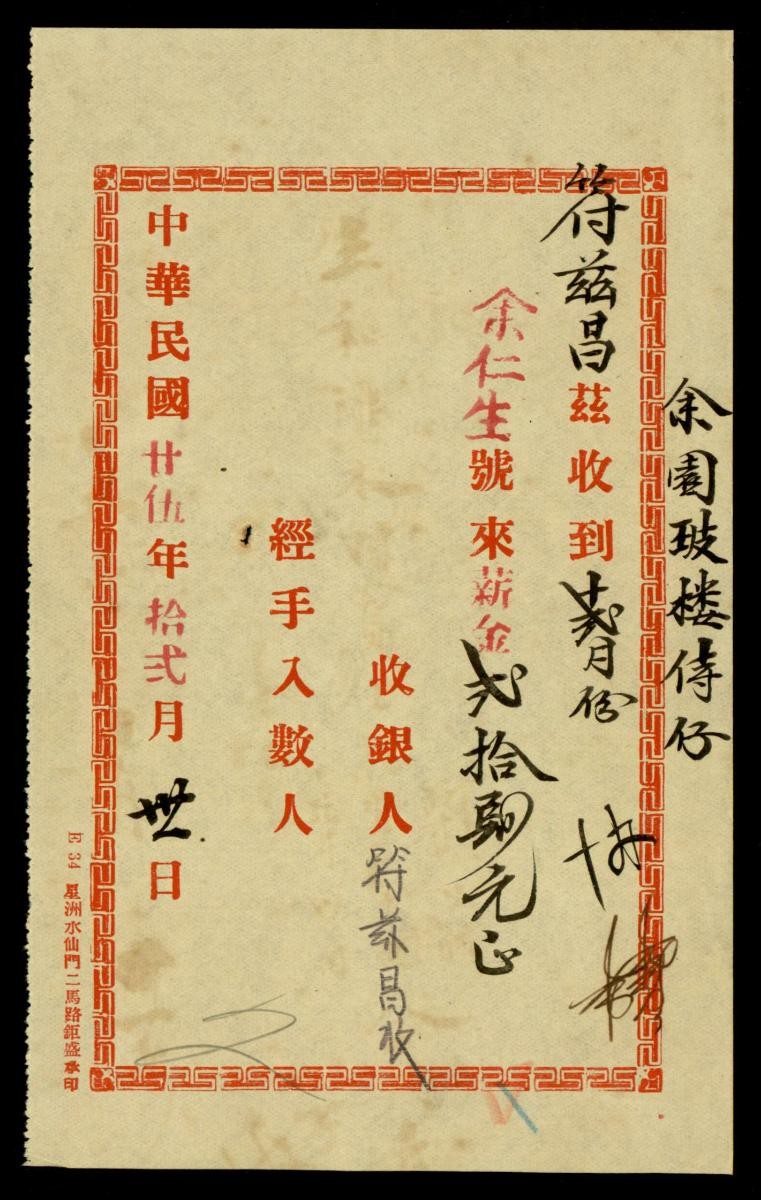 余園玻楼侍仔
符兹昌茲收到十弍月份
余仁生號來薪金弍拾四元正
收銀人符兹昌收
經手入數人
中華民國廿伍年拾弍月卅一日
E 34 星洲水仙門二馬路鉅盛承印